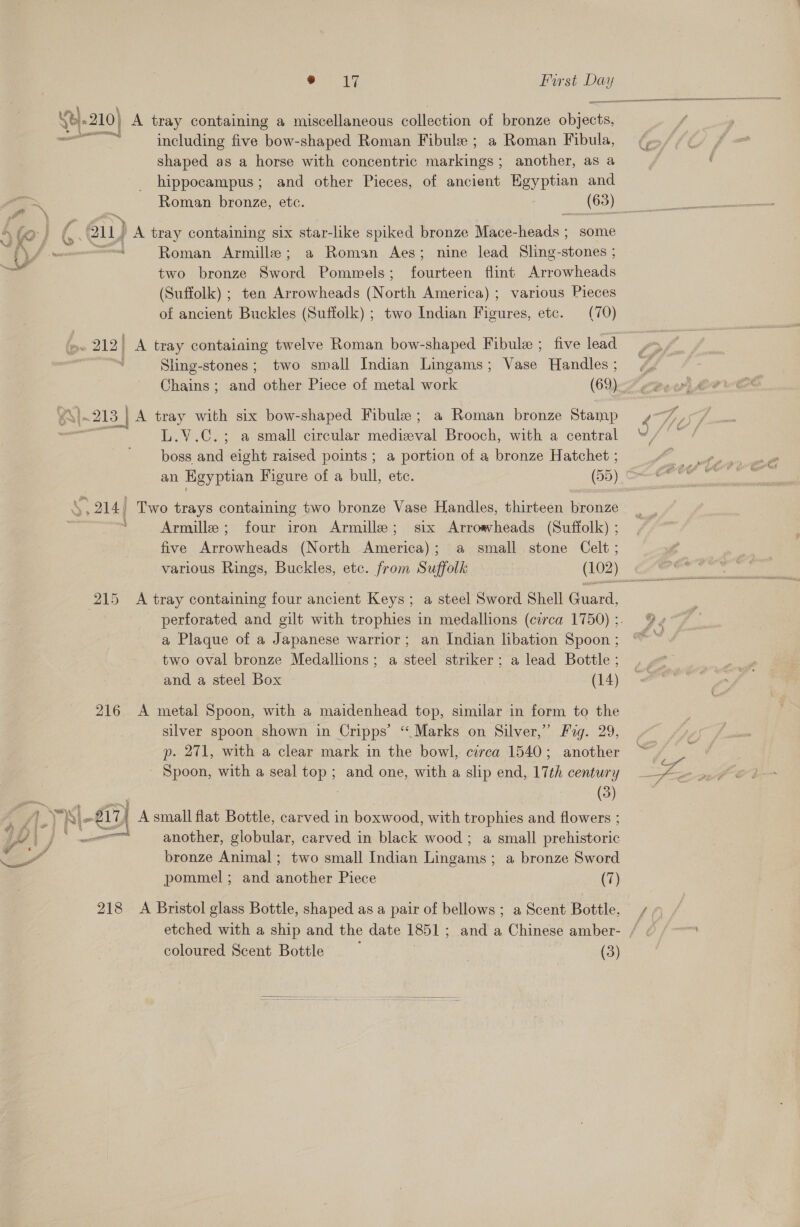 17 First Day
210 A tray containing a miscellaneous collection of bronze objects,
including five bow-shaped Roman Fibulæ ; a Roman Fibula,
shaped as a horse with concentric markings ; another, as a
hippocampus ; and other Pieces, of ancient Egyptian and
Roman bronze, etc. (63)
211 A tray containing six star-like spiked bronze Mace-heads ; some
Roman Armillæ ; a Roman Aes ; nine lead Sling-stones ;
two bronze Sword Pommels ; fourteen flint Arrowheads
(Suffolk) ; ten Arrowheads (North America) ; various Pieces
of ancient Buckles (Suffolk) ; two Indian Figures, etc. (70)
212 A tray containing twelve Roman bow-shaped Fibulæ ; five lead
Sling-stones ; two small Indian Lingams ; Vase Handles ;
Chains ; and other Piece of metal work (69)
213 A tray with six bow-shaped Fibulæ ; a Roman bronze Stamp
L.V.C. ; a small circular mediæval Brooch, with a central
boss and eight raised points ; a portion of a bronze Hatchet ;
an Egyptian Figure of a bull, etc. (55)
214 Two trays containing two bronze Vase Handles, thirteen bronze
Armillæ ; four iron Armillæ ; six Arrowheads (Suffolk) ;
five Arrowheads (North America) ; a small stone Celt ;
various Rings, Buckles, etc. from Suffolk (102)
215 A tray containing four ancient Keys ; a steel Sword Shell Guard,
perforated and gilt with trophies in medallions (circa 1750) ;
a Plaque of a Japanese warrior ; an Indian libation Spoon ;
two oval bronze Medallions ; a steel striker ; a lead Bottle ;
and a steel Box (14)
216 A metal Spoon, with a maidenhead top, similar in form to the
silver spoon shown in Cripps' “Marks on Silver,” Fig. 29,
p. 271, with a clear mark in the bowl, circa 1540 ; another
Spoon, with a seal top ; and one, with a slip end, 17th century
(3)
217 A small flat Bottle, carved in boxwood, with trophies and flowers ;
another, globular, carved in black wood ; a small prehistoric
bronze Animal ; two small Indian Lingams ; a bronze Sword
pommel ; and another Piece (7)
218 A Bristol glass Bottle, shaped as a pair of bellows ; a Scent Bottle,
etched with a ship and the date 1851 ; and a Chinese amber-
coloured Scent Bottle (3)